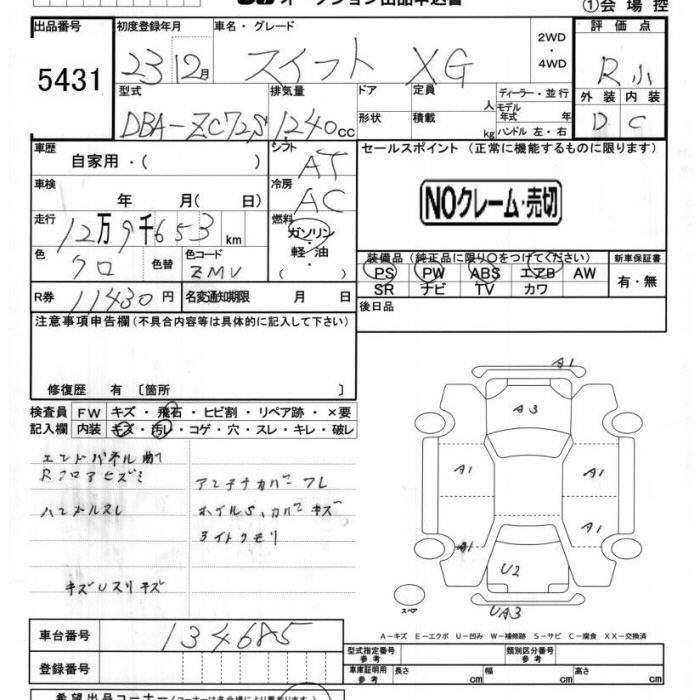 オークション出品申込書 ①会場控
出品番号 初度登録年月 車名・グレード 2WD・4WD 評価点
5431 23 12月 スイフト XG R小
型式 排気量 ドア 定員 人 ディーラー・並行 外装 内装
DBA-ZC72S 1240cc 形状 積載 kg モデル年式 年 ハンドル 左・右 D C
車歴 自家用・( ) シフト AT セールスポイント (正常に機能するものに限ります)
車検 年 月(日) 冷房 AC
NOクレーム・売切
走行 12万9千653km 燃料 ガソリン・軽油・( )
色 クロ 色替 色コード ZMV
装備品 (純正品に限り○をつけてください) 新車保証書
PS PW ABS エアB AW 有・無
SR ナビ TV カワ
R券 11430円 名変通知期限 月 日
後日品
注意事項申告欄(不具合内容等は具体的に記入して下さい)
修復歴 有 〔箇所 〕
検査員記入欄 FW キズ・飛石・ヒビ割・リペア跡・×要
内装 キズ・汚レ・コゲ・穴・スレ・キレ・破レ
エンドパネル曲
Rフロアヒズミ
アンテナカバーワレ
ハンドルスレ
ホイルS、カバーキズ
ライトクモリ
キズUスリキズ
A1
A3
A1
A1
A1
A1
U2
UA3
スペア
A-キズ E-エクボ U-凹み W-補修跡 S-サビ C-腐食 XX-交換済
車台番号 134685
型式指定番号 参考 類別区分番号 参考
登録番号
車庫証明用 参考 長さ cm 幅 cm 高さ cm
希望出品コーナー(コーナーは各会場により異なります)